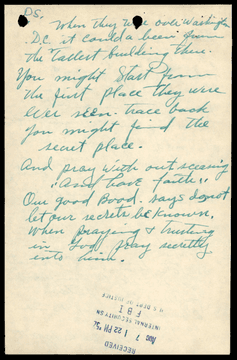 P.S.
When they were over Washington
D.C. it could a been from
the Tallest building there.
You might start from
the first place they were
ever seen. trace back
you might find the
secret place.
And pray with out ceasing
"And have faith,"
Our good Book. says do not
let our secrets be known.
When praying & trusting
in God, pray secretly
into him.
RECEIVED
AUG 7 1 22 PM '52
INTERNAL SECURITY
F B I
U.S. DEPT. OF JUSTICE